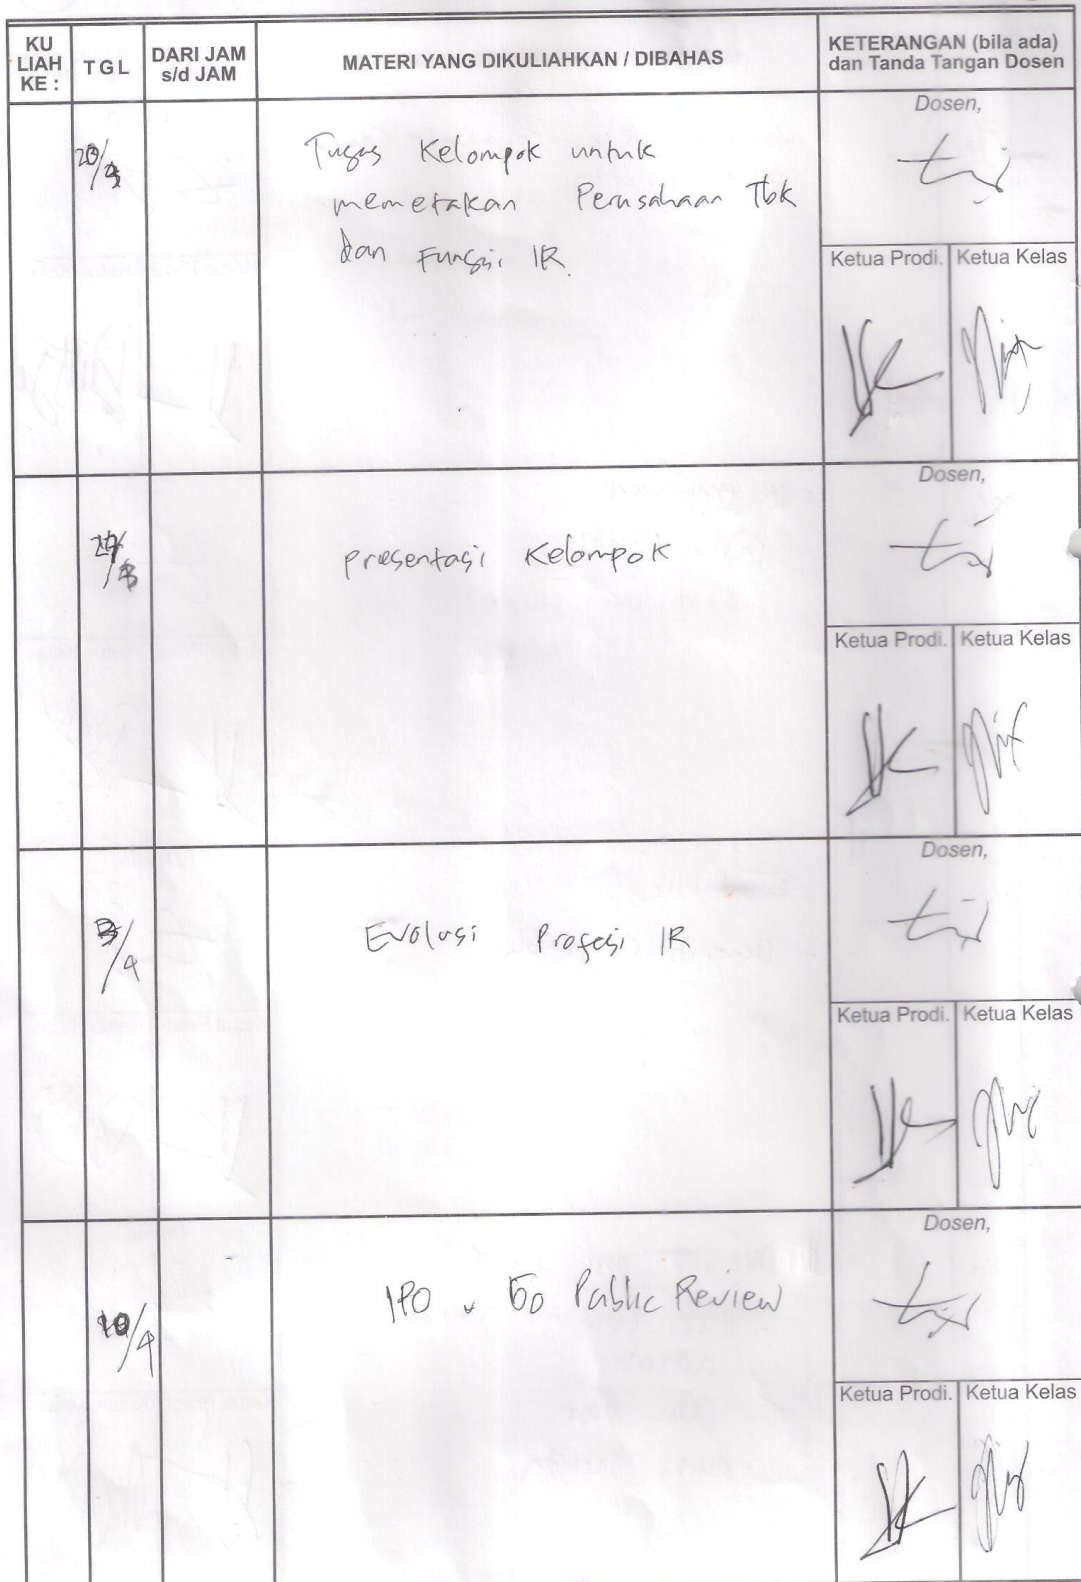 KU
LIAH
KE :
TGL
DARI JAM
s/d JAM
MATERI YANG DIKULIAHKAN / DIBAHAS
KETERANGAN (bila ada)
dan Tanda Tangan Dosen
20/3
Tugas Kelompok untuk
memetakan Perusahaan Tbk
dan Fungsi IR.
Dosen,
Ketua Prodi. Ketua Kelas
27/3
presentasi Kelompok
Dosen,
Ketua Prodi. Ketua Kelas
3/4
Evolusi Profesi IR
Dosen,
Ketua Prodi. Ketua Kelas
10/4
IPO Go Public Review
Dosen,
Ketua Prodi. Ketua Kelas